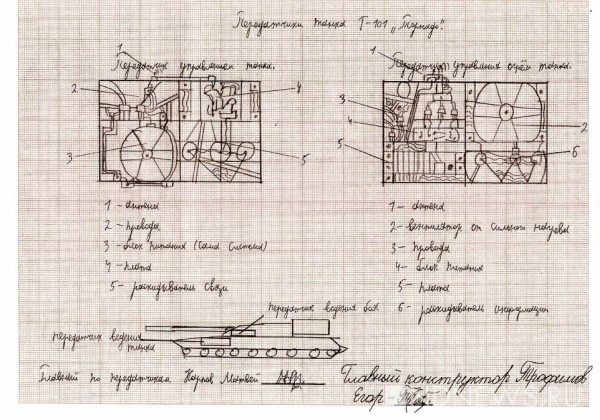 Передатчики танка Т-101 „Торнадо".
1
Передатчик управлением танка.
2
3
4
5
1
Передатчик управления огнём танка.
3
4
5
2
6
1 - антена
2 - провода
3 - блок питания (сама система)
4 - плата
5 - раскидыватель связи
1 - антена
2 - вентилятор от сильного нагрева
3 - провода
4 - блок питания
5 - плата
6 - раскидыватель информации
передатчик ведения боя
передатчик ведения
танка
Главный по передатчикам Карпов Матвей
Главный конструктор Трофимов
Егор -